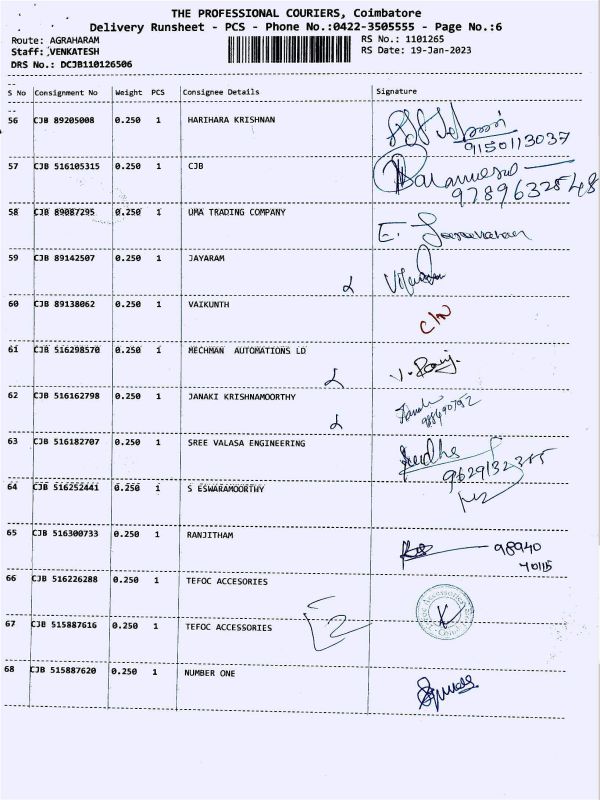 THE PROFESSIONAL COURIERS, Coimbatore
Delivery Runsheet - PCS - Phone No.:0422-3505555 - Page No.:6
Route: AGRAHARAM RS No.: 1101265
Staff: VENKATESH RS Date: 19-Jan-2023
DRS No.: DCJB110126506
S No Consignment No Weight PCS Consignee Details Signature
56 CJB 89205008 0.250 1 HARIHARA KRISHNAN
9150113037
57 CJB 516105315 0.250 1 CJB
9789632548
58 CJB 89087295 0.250 1 UMA TRADING COMPANY E.
59 CJB 89142507 0.250 1 JAYARAM
60 CJB 89138062 0.250 1 VAIKUNTH
61 CJB 516298570 0.250 1 MECHMAN AUTOMATIONS LD
62 CJB 516162798 0.250 1 JANAKI KRISHNAMOORTHY
63 CJB 516182707 0.250 1 SREE VALASA ENGINEERING
64 CJB 516252441 0.250 1 S ESWARAMOORTHY
65 CJB 516300733 0.250 1 RANJITHAM 98940
70115
66 CJB 516226288 0.250 1 TEFOC ACCESORIES
67 CJB 515887616 0.250 1 TEFOC ACCESSORIES
68 CJB 515887620 0.250 1 NUMBER ONE